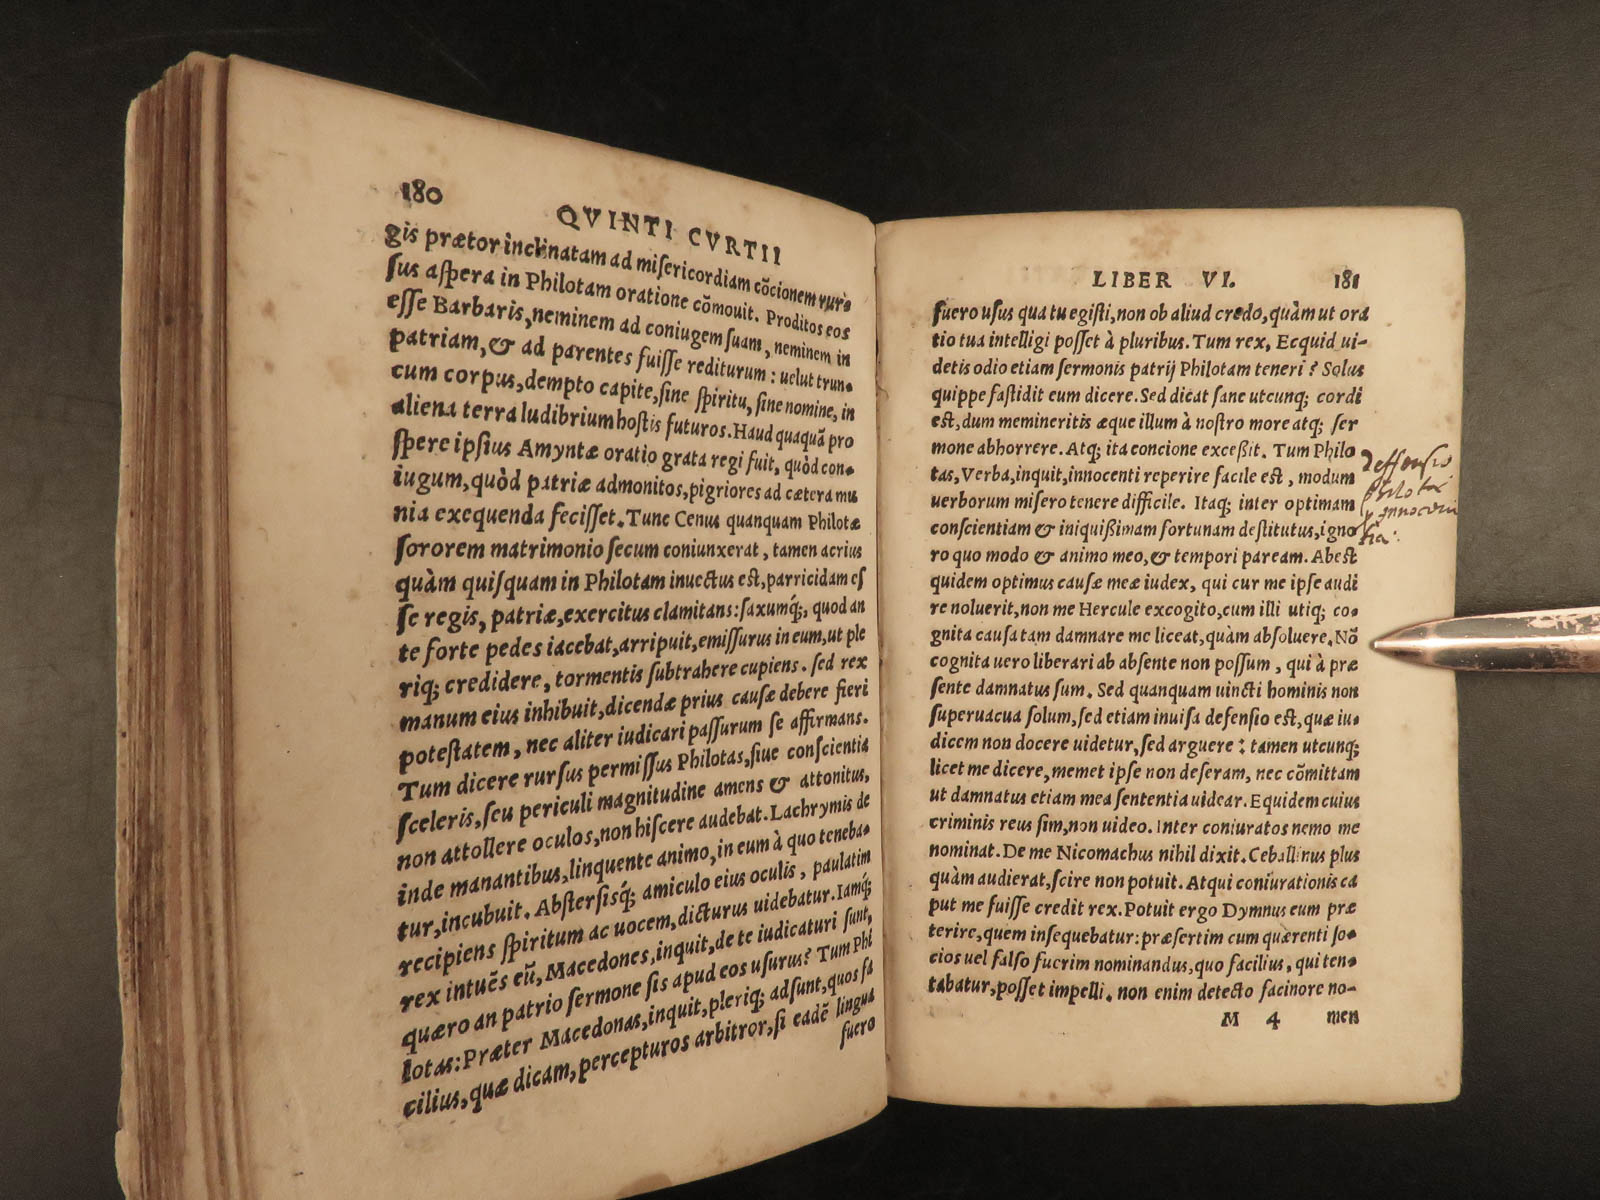 180
QVINTI CVRTII
gis prætor inclinatam ad misericordiam cōcionem rur-
sus aspera in Philotam oratione cōmouit. Proditos eos
esse Barbaris, neminem ad coniugem suam, neminem in
patriam, & ad parentes fuisse rediturum: uelut trun-
cum corpus, dempto capite, sine spiritu, sine nomine, in
aliena terra ludibrium hostis futuros. Haud quaquā pro
spere ipsius Amyntæ oratio grata regi fuit, quòd con-
iugum, quòd patriæ admonitos, pigriores ad cætera mu
nia exequenda fecisset. Tunc Cenus quanquam Philotæ
sororem matrimonio secum coniunxerat, tamen acrius
quàm quisquam in Philotam inuectus est, parricidam es
se regis, patriæ, exercitus clamitans: saxumq́;, quod an
te forte pedes iacebat, arripuit, emissurus in eum, ut ple
riq; credidere, tormentis subtrahere cupiens. sed rex
manum eius inhibuit, dicendæ prius causæ debere fieri
potestatem, nec aliter iudicari passurum se affirmans.
Tum dicere rursus permissus Philotas, siue conscientia
sceleris, seu periculi magnitudine amens & attonitus,
non attollere oculos, non hiscere audebat. Lachrymis de
inde manantibus, linquente animo, in eum à quo teneba-
tur, incubuit. Abstersisq́; amiculo eius oculis, paulatim
recipiens spiritum ac uocem, dicturus uidebatur. Iamq́;
rex intuēs eū, Macedones, inquit, de te iudicaturi sunt,
quæro an patrio sermone sis apud eos usurus? Tum Phi
lotas: Præter Macedonas, inquit, pleriq; adsunt, quos fa
cilius, quæ dicam, percepturos arbitror, si eadē lingua
fuero
LIBER VI. 181
fuero usus qua tu egisti, non ob aliud credo, quàm ut ora
tio tua intelligi posset à pluribus. Tum rex, Ecquid ui-
detis odio etiam sermonis patrij Philotam teneri? Solus
quippe fastidit eum dicere. Sed dicat sane utcunq; cordi
est, dum memineritis æque illum à nostro more atq; ser
mone abhorrere. Atq; ita concione exceßit. Tum Philo
tas, Verba, inquit, innocenti reperire facile est, modum
uerborum misero tenere difficile. Itaq; inter optimam
conscientiam & iniquißimam fortunam destitutus, igno
ro quo modo & animo meo, & tempori paream. Abest
quidem optimus causæ meæ iudex, qui cur me ipse audi
re noluerit, non me Hercule excogito, cum illi utiq; co-
gnita causa tam damnare me liceat, quàm absoluere. Nō
cognita uero liberari ab absente non possum, qui à præ
sente damnatus sum. Sed quanquam uincti hominis non
superuacua solum, sed etiam inuisa defensio est, quæ iu-
dicem non docere uidetur, sed arguere: tamen utcunq;
licet me dicere, memet ipse non deseram, nec cōmittam
ut damnatus etiam mea sententia uidear. Equidem cuius
criminis reus sim, non uideo. Inter coniuratos nemo me
nominat. De me Nicomachus nihil dixit. Ceballinus plus
quàm audierat, scire non potuit. Atqui coniurationis ca
put me fuisse credit rex. Potuit ergo Dymnus eum præ
terire, quem insequebatur: præsertim cum quærenti so-
cios uel falso fuerim nominandus, quo facilius, qui ten-
tabatur, posset impelli. non enim detecto facinore no-
M 4 men
deffensio
philotæ